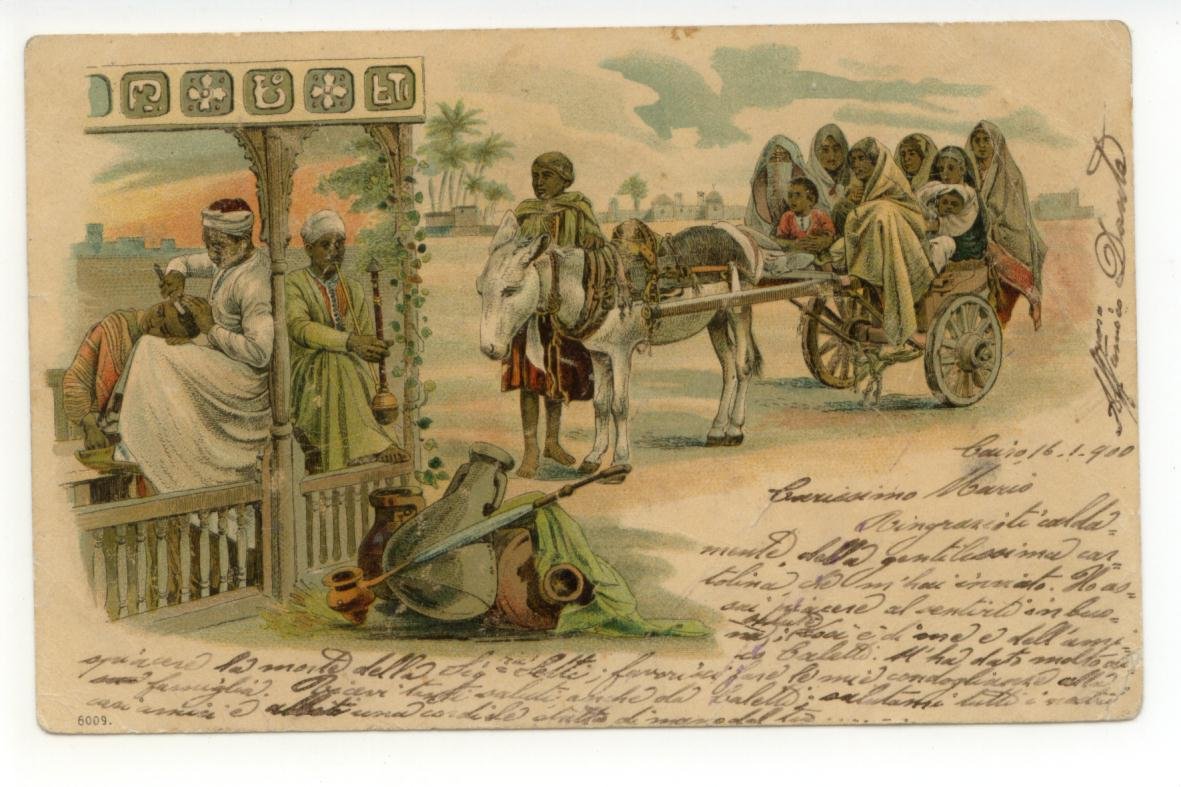 Cairo, 16.1.900
Carissimo Mario
Ringrazioti calda-
mente della gentilissima car-
tolina, che m'hai inviato. Ho as-
sai piacere al sentirti in buo-
na salute; così è di me e dell'ami-
co Caletti. M'ha dato molto di-
spiacere la morte della Sig.ra Setti; favorisci fare le mie condoglianze alla
sua famiglia. Ricevi tanti saluti anche da Caletti, salutami tutti i nostri
cari amici e abbiti una cordiale stretta di mano dal tuo ......
Affmo amico Dante
6009.